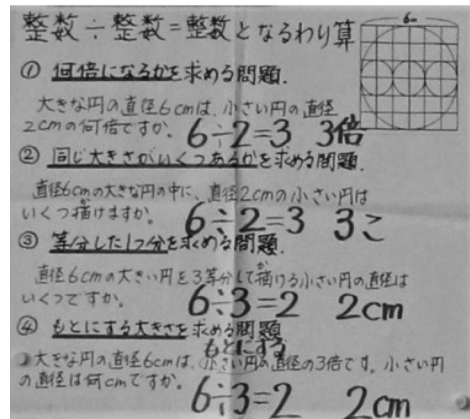 整数÷整数=整数となるわり算
6cm
① 何倍になるかを求める問題.
大きな円の直径6cmは、小さい円の直径
2cmの何倍ですか。 6÷2=3 3倍
② 同じ大きさがいくつあるかを求める問題.
直径6cmの大きな円の中に、直径2cmの小さい円は
いくつ描けますか。 6÷2=3 3こ
③ 等分した1つ分を求める問題.
直径6cmの大きい円を3等分して描ける小さい円の直径は
いくつですか。 6÷3=2 2cm
④ もとにする大きさを求める問題
もとにする
大きな円の直径6cmは、小さい円の直径の3倍です。小さい円
の直径は何cmですか。 6÷3=2 2cm